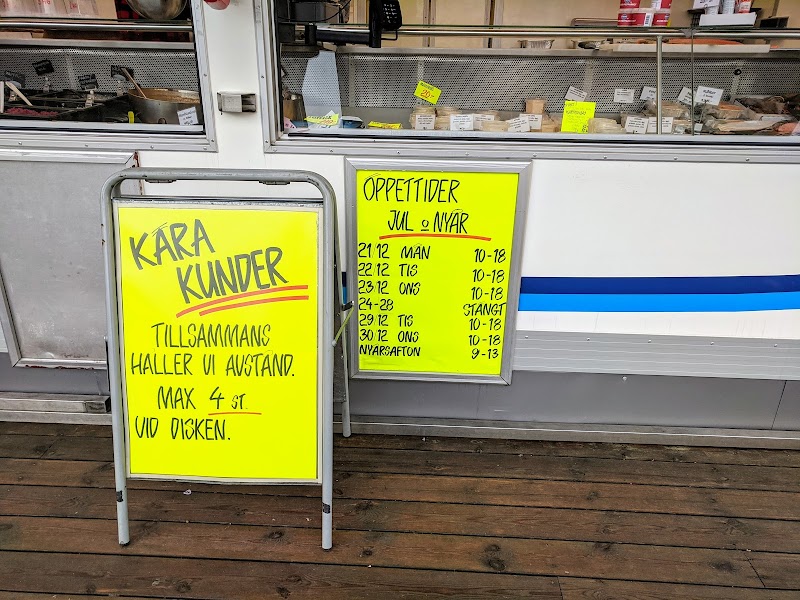 KÄRA
KUNDER
TILLSAMMANS
HÅLLER VI AVSTÅND.
MAX 4 ST.
VID DISKEN.
ÖPPETTIDER
JUL o NYÅR
21/12 MÅN 10-18
22/12 TIS 10-18
23/12 ONS 10-18
24-28 STÄNGT
29/12 TIS 10-18
30/12 ONS 10-18
NYÅRSAFTON 9-13